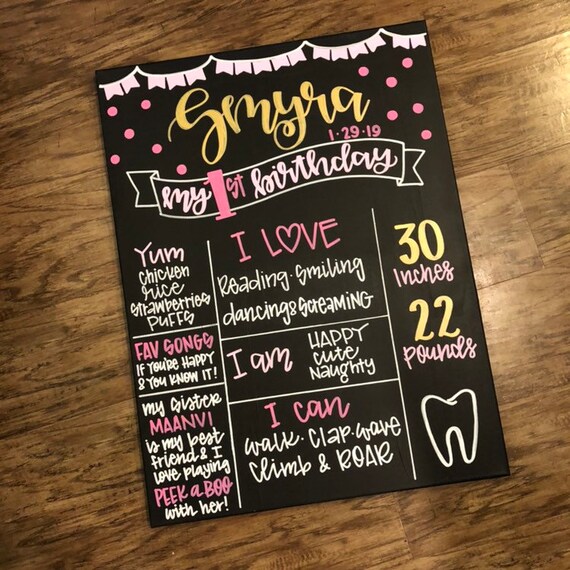 Smyra
1·29·19
my 1st birthday
Yum
chicken
rice
strawberries
PUFFS
FAV SONGS
IF YOU'RE HAPPY
& YOU KNOW IT!
my sister
MAANVI
is my best
friend & I
love playing
PEEK A BOO
with her!
I LOVE
Reading · Smiling
dancing & SCREAMING
I am
HAPPY
cute
Naughty
I can
walk · Clap · wave
Climb & ROAR
30
inches
22
Pounds